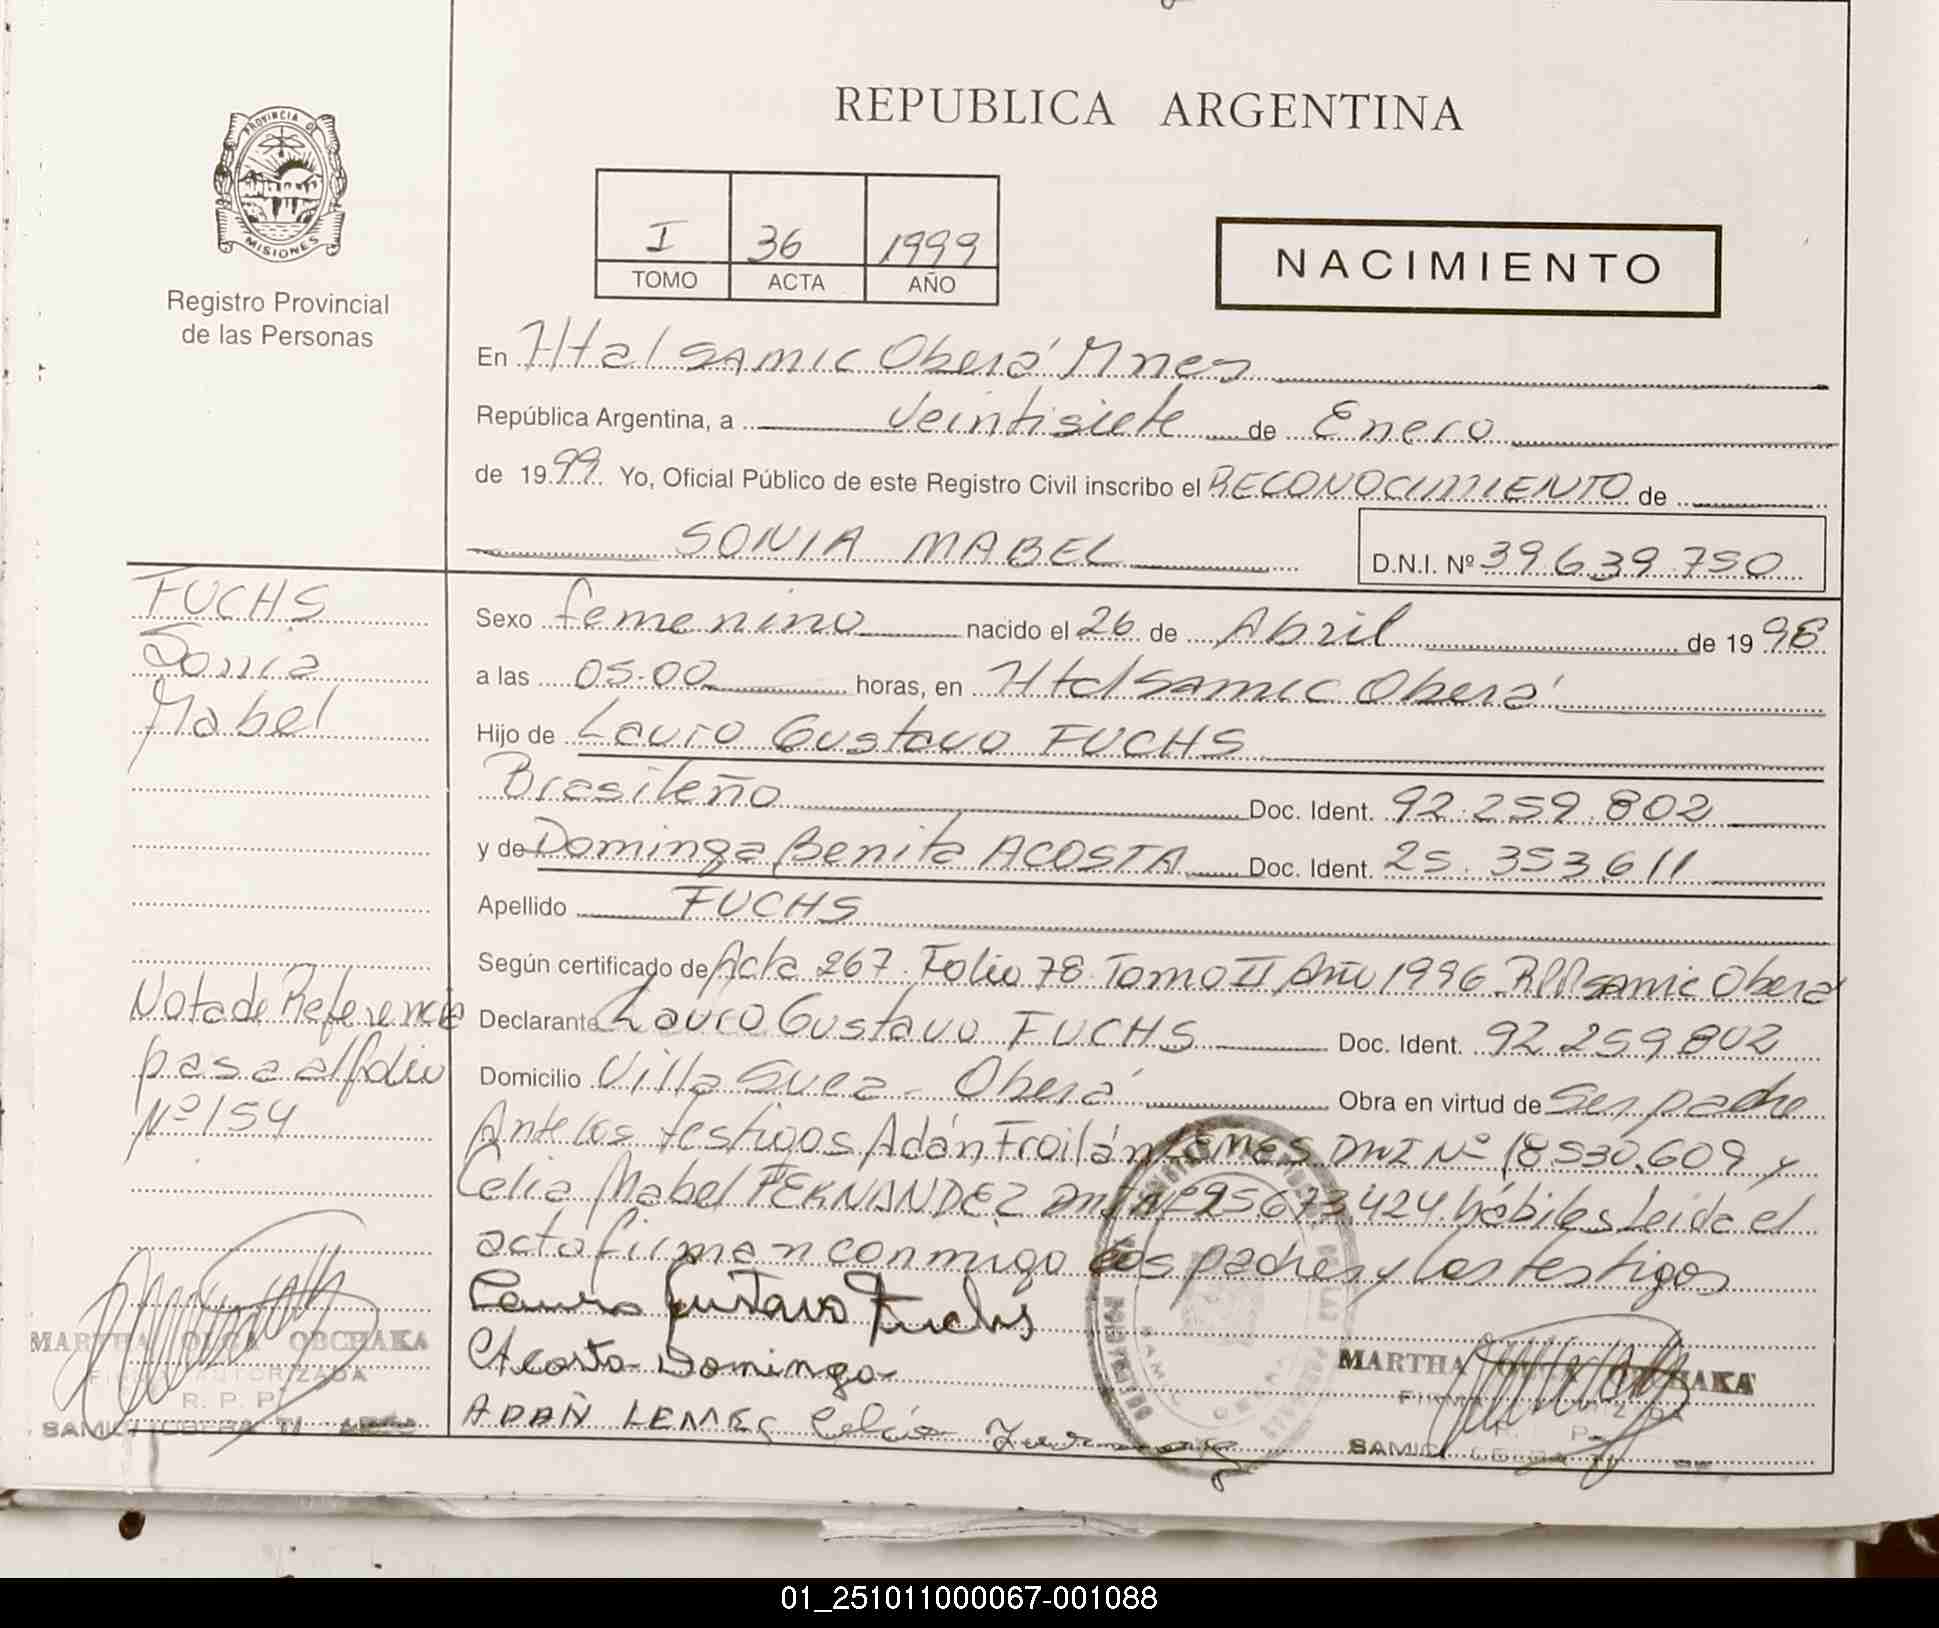 REPUBLICA ARGENTINA
PROVINCIA DE
MISIONES
Registro Provincial
de las Personas
I 36 1999
TOMO ACTA AÑO
NACIMIENTO
En Htal SAMIC Oberá Mnes
República Argentina, a Veintisiete de Enero
de 1999. Yo, Oficial Público de este Registro Civil inscribo el RECONOCIMIENTO de
SONIA MABEL
D.N.I. Nº 39639750
FUCHS
Sonia
Mabel
Sexo femenino nacido el 26 de Abril de 1996
a las 05.00 horas, en Htal Samic Oberá
Hijo de Lauro Gustavo FUCHS
Brasileño Doc. Ident. 92.259.802
y de Dominga Benita ACOSTA Doc. Ident. 25.353611
Apellido FUCHS
Según certificado de Acta 267 Folio 78 Tomo II Año 1996 RPP samic Oberá
Nota de Referencia
pasa al folio
Nº 154
Declarante Lauro Gustavo FUCHS Doc. Ident. 92 259802
Domicilio Villa Svea - Oberá Obra en virtud de Ser padre
Ante los testigos Adán Froilán LEMES DNI Nº 18530.609 y
Celia Mabel FERNANDEZ DNI Nº 25673.424 hábiles Leida el
acto firman conmigo los padres y los testigos
Lauro Gustavo Fuchs
Acosta Dominga
ADAÑ LEMES Celia
MARTHA OLGA OBCHAKA
FIRMA AUTORIZADA
R. P. P.
SAMIC OBERA
MARTHA OLGA OBCHAKA
FIRMA AUTORIZADA
R. P. P.
SAMIC OBERA
01_251011000067-001088